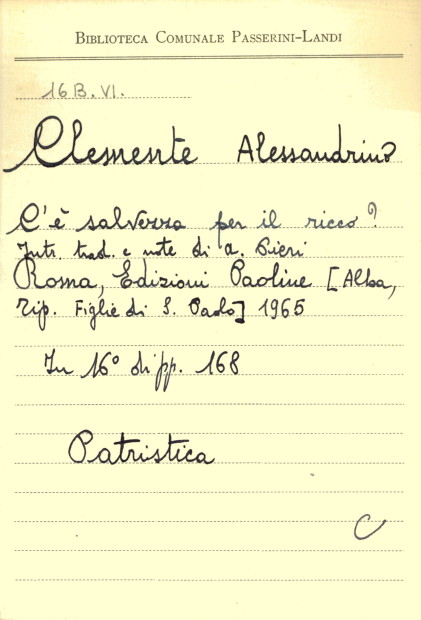 BIBLIOTECA COMUNALE PASSERINI-LANDI
16 B. VI.
Clemente Alessandrino
C'è salvezza per il ricco?
Intr. trad. e note di A. Pieri
Roma, Edizioni Paoline [Alba,
Tip. Figlie di S. Paolo] 1965
In 16° di pp. 168
Patristica
C